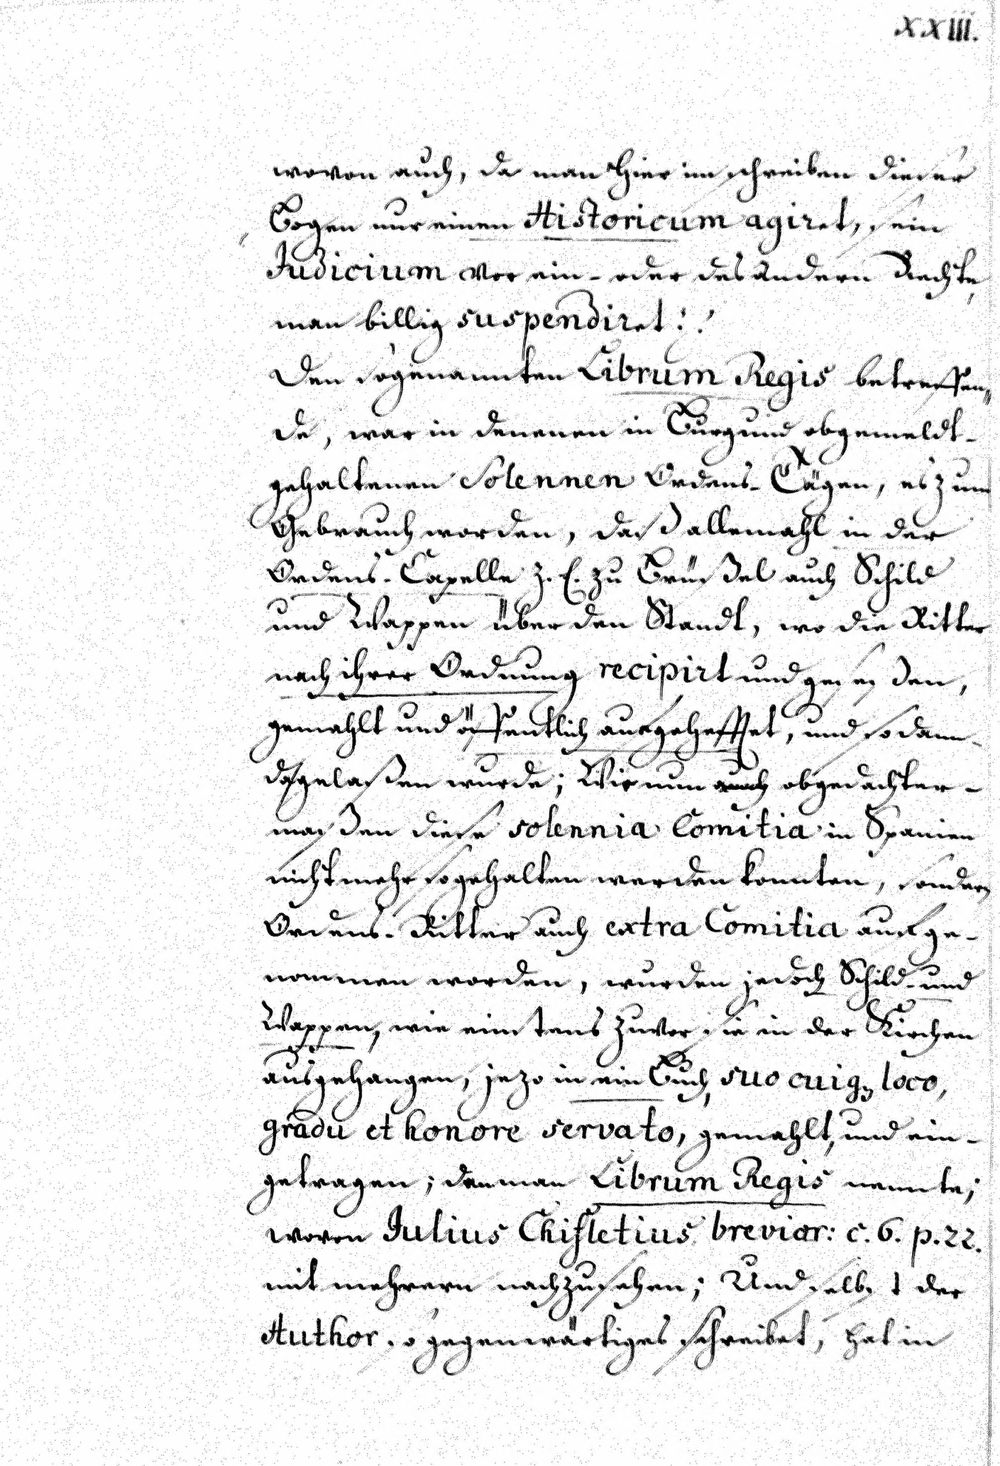 XXIII.
wovon auch, da man hier im schreiben dieser
Bogen nur einen Historicum agiret, sein
Judicium vor ein- oder des andern Rechte,
man billig suspendiret!.!
Den sogenannten Librum Regis betreffen-
de, war in denenen in Burgund obgemeldt-
gehaltenen Solennen Ordens-Tägen, es zum
Gebrauch worden, daß allemahl in der
Ordens-Capelle z. E. zu Brüßel auch Schild
und Wappen über den Standt, wo die Ritter
nach ihrer Ordnung recipirt und geseßen,
gemahlt und öffentlich aufgehefftet, und sodann
dagelaßen wurde; Wie nun auch obgedachter-
maßen diese solennia Comitia in Spanien
nicht mehr so gehalten werden konnten, sondern
Ordens-Ritter auch extra Comitia aufge-
nommen worden, wurden jedoch Schild- und
Wappen, wie einstens zuvor sie in der Kirchen
ausgehangen, jezo in ein Buch, suo cuiq₃ loco,
gradu et honore servato, gemahlt, und ein-
getragen; den man Librum Regis nennte;
wovon Julius Chifletius breviar: c. 6. p. 22.
mit mehrern nachzusehen; Und selbst der
Author so gegenwärtiges schreibet, hat in